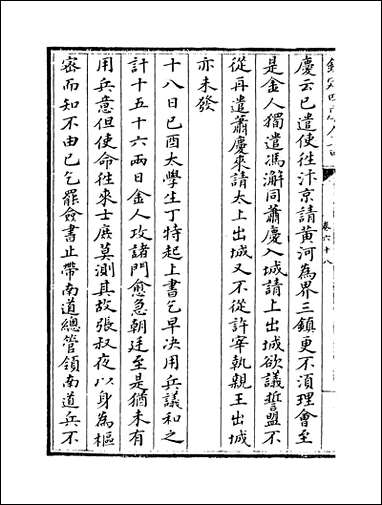 慶云已遣使徃汴京請黄河為界三鎮更不須理會至
是金人獨遣馮澥同蕭慶入城請上出城欲議誓盟不
從再遣蕭慶來請太上出城又不從許宰執親王出城
亦未發
十八日已酉太學生丁特起上書乞早决用兵議和之
計十五十六兩日金人攻諸門愈急朝廷至是猶未有
用兵意但使命徃來士庶莫測其故張叔夜以身為樞
宻而知不由已乞罷僉書止帶南道總管領南道兵不
卷六十八